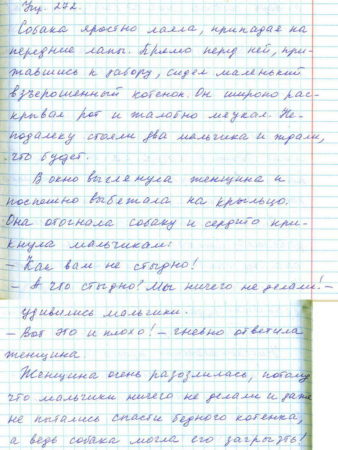 Упр. 272.
Собака яростно лаяла, припадая на
передние лапы. Прямо перед ней, при-
жавшись к забору, сидел маленький
взъерошенный котенок. Он широко рас-
крывал рот и жалобно мяукал. Не-
подалеку стояли два мальчика и ждали,
что будет.
В окно выглянула женщина и
поспешно выбежала на крыльцо.
Она отогнала собаку и сердито кри-
кнула мальчикам:
– Как вам не стыдно!
– А что стыдно? Мы ничего не делали! –
удивились мальчики.
– Вот это и плохо! – гневно ответила
женщина.
Женщина очень разозлилась, потому
что мальчики ничего не делали и даже
не пытались спасти бедного котенка,
а ведь собака могла его загрызть!